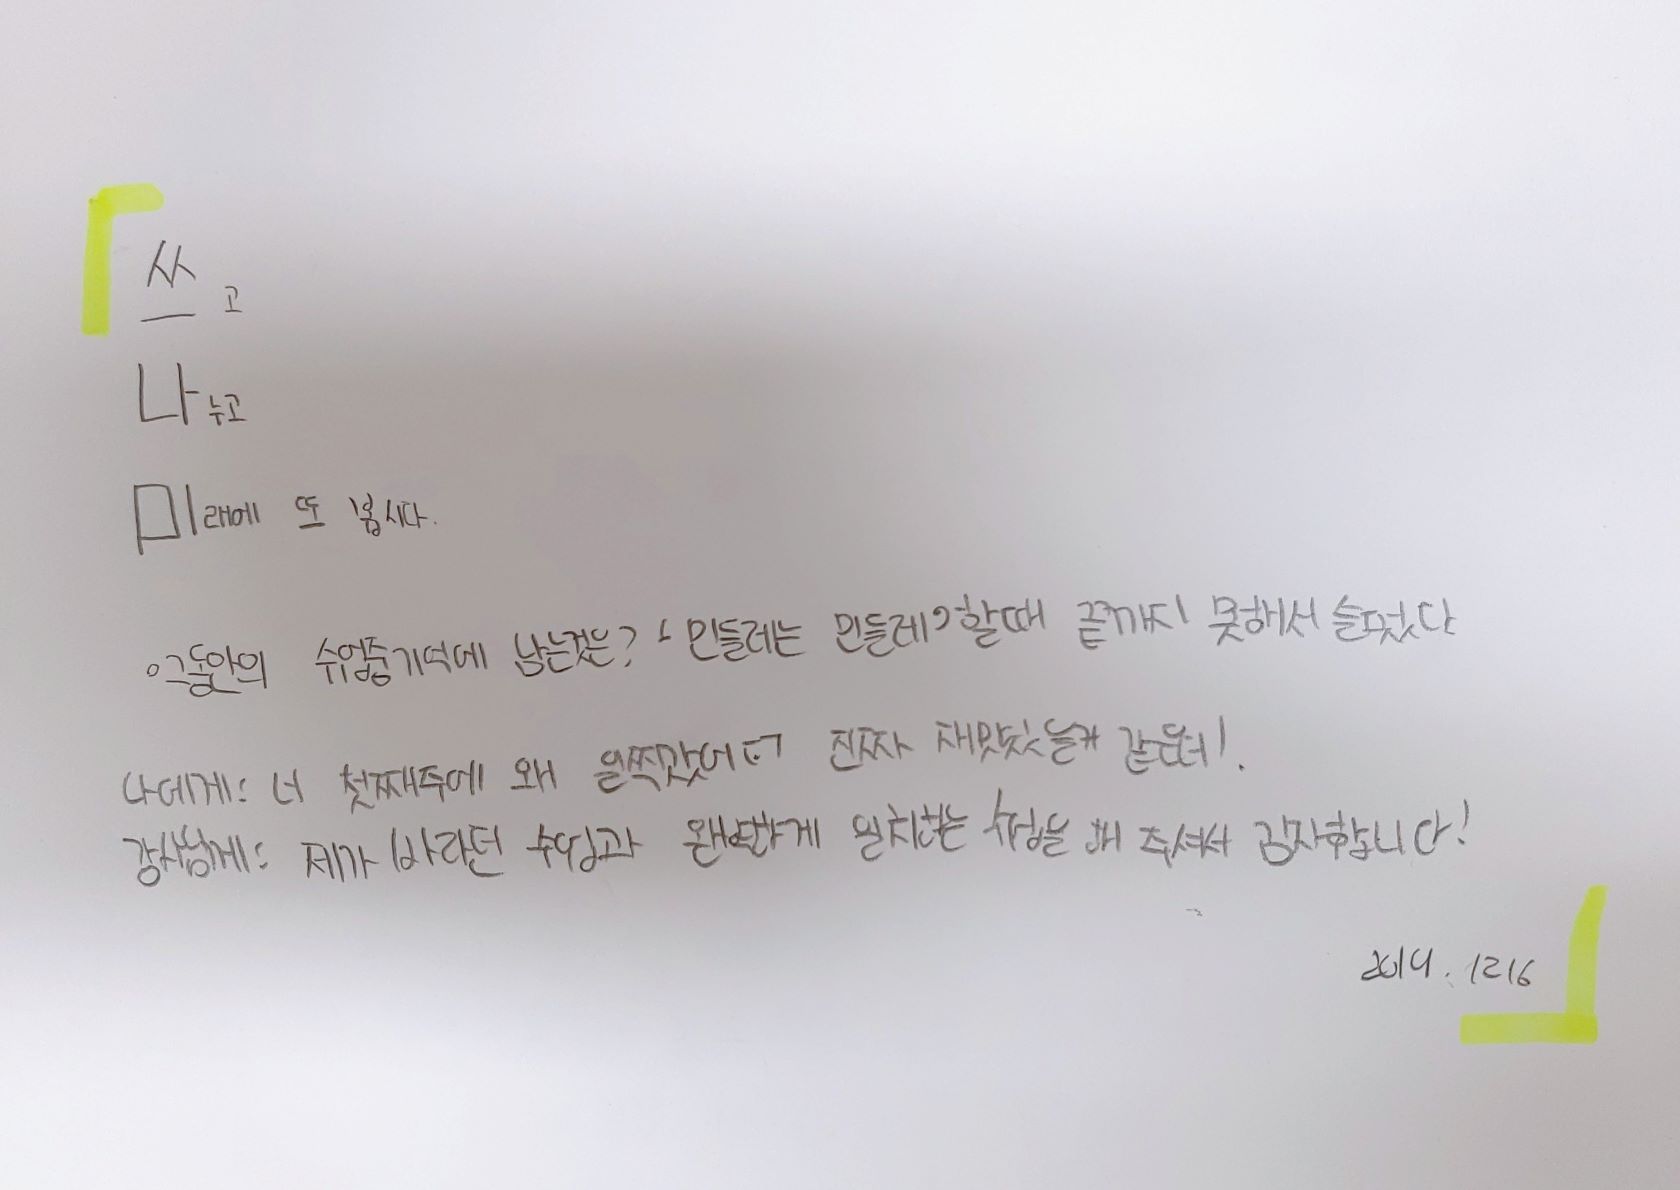 쓰고
나누고
미래에 또 봅시다.
그동안의 수업중기억에 남는것은? 민들레는 민들레 할때 끝까지 못해서 슬펐다
나에게: 너 첫째주에 왜 일찍갔어 진짜 재밌었을거 같은데!
강사님께: 제가 바라던 수업과 완벽하게 일치하는 수업을 해 주셔서 감사합니다!
2019. 12 16